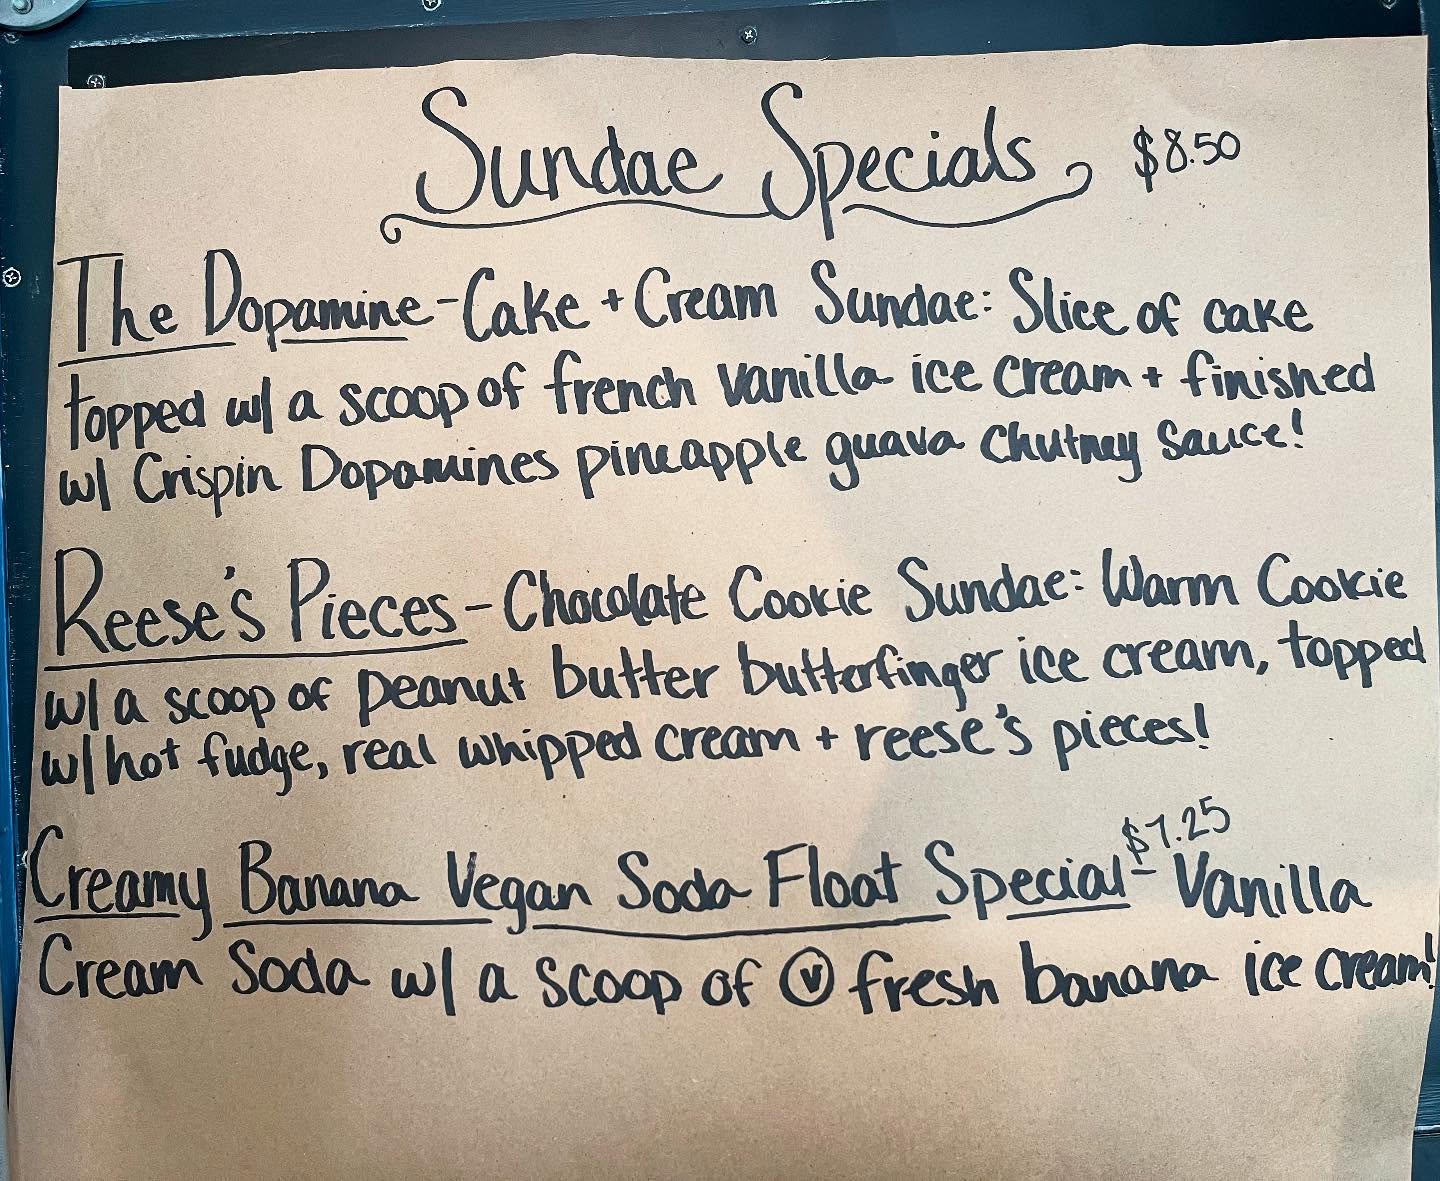 Sundae Specials $8.50
The Dopamine - Cake + Cream Sundae: Slice of cake
topped w/ a scoop of french vanilla ice cream + finished
w/ Crispin Dopamines pineapple guava chutney sauce!
Reese's Pieces - Chocolate Cookie Sundae: Warm Cookie
w/ a scoop of peanut butter butterfinger ice cream, topped
w/ hot fudge, real whipped cream + reese's pieces!
Creamy Banana Vegan Soda Float Special $7.25 - Vanilla
Cream Soda w/ a scoop of Ⓥ fresh banana ice cream!